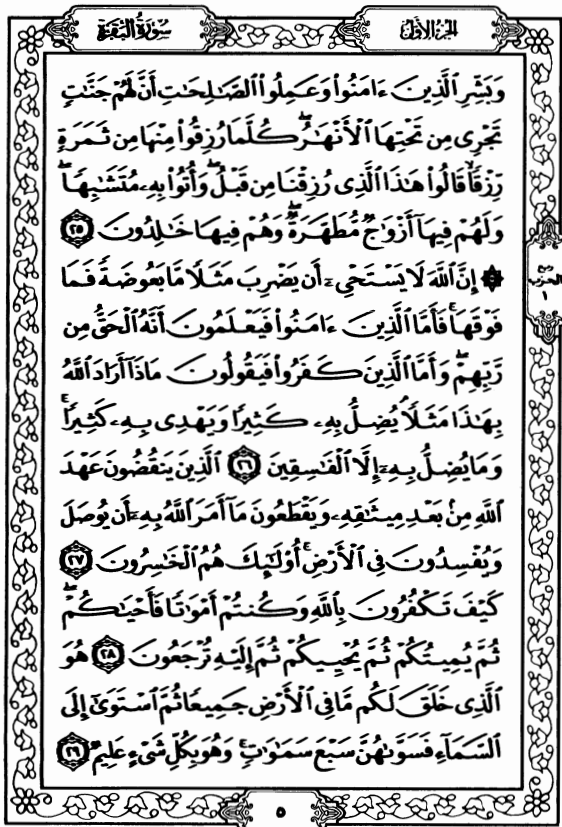 سُورَةُ البَقَرَةِ
الجُزْءُ الأَوَّلُ
وَبَشِّرِ الَّذِينَ ءَامَنُوا۟ وَعَمِلُوا۟ الصَّـٰلِحَـٰتِ أَنَّ لَهُمْ جَنَّـٰتٍ
تَجْرِى مِن تَحْتِهَا الْأَنْهَـٰرُ ۖ كُلَّمَا رُزِقُوا۟ مِنْهَا مِن ثَمَرَةٍ
رِّزْقًا ۙ قَالُوا۟ هَـٰذَا الَّذِى رُزِقْنَا مِن قَبْلُ ۖ وَأُتُوا۟ بِهِۦ مُتَشَـٰبِهًا ۖ
وَلَهُمْ فِيهَآ أَزْوَٰجٌ مُّطَهَّرَةٌ ۖ وَهُمْ فِيهَا خَـٰلِدُونَ ٢٥
۞ إِنَّ اللَّهَ لَا يَسْتَحْىِۦٓ أَن يَضْرِبَ مَثَلًا مَّا بَعُوضَةً فَمَا
فَوْقَهَا ۚ فَأَمَّا الَّذِينَ ءَامَنُوا۟ فَيَعْلَمُونَ أَنَّهُ الْحَقُّ مِن
رَّبِّهِمْ ۖ وَأَمَّا الَّذِينَ كَفَرُوا۟ فَيَقُولُونَ مَاذَآ أَرَادَ اللَّهُ
بِهَـٰذَا مَثَلًا ۘ يُضِلُّ بِهِۦ كَثِيرًا وَيَهْدِى بِهِۦ كَثِيرًا ۚ
وَمَا يُضِلُّ بِهِۦٓ إِلَّا الْفَـٰسِقِينَ ٢٦ الَّذِينَ يَنقُضُونَ عَهْدَ
اللَّهِ مِنۢ بَعْدِ مِيثَـٰقِهِۦ وَيَقْطَعُونَ مَآ أَمَرَ اللَّهُ بِهِۦٓ أَن يُوصَلَ
وَيُفْسِدُونَ فِى الْأَرْضِ ۚ أُو۟لَـٰٓئِكَ هُمُ الْخَـٰسِرُونَ ٢٧
كَيْفَ تَكْفُرُونَ بِاللَّهِ وَكُنتُمْ أَمْوَٰتًا فَأَحْيَـٰكُمْ ۖ
ثُمَّ يُمِيتُكُمْ ثُمَّ يُحْيِيكُمْ ثُمَّ إِلَيْهِ تُرْجَعُونَ ٢٨ هُوَ
الَّذِى خَلَقَ لَكُم مَّا فِى الْأَرْضِ جَمِيعًا ثُمَّ اسْتَوَىٰٓ إِلَى
السَّمَآءِ فَسَوَّىٰهُنَّ سَبْعَ سَمَـٰوَٰتٍ ۚ وَهُوَ بِكُلِّ شَىْءٍ عَلِيمٌ ٢٩
ربع
الحزب
١
٥